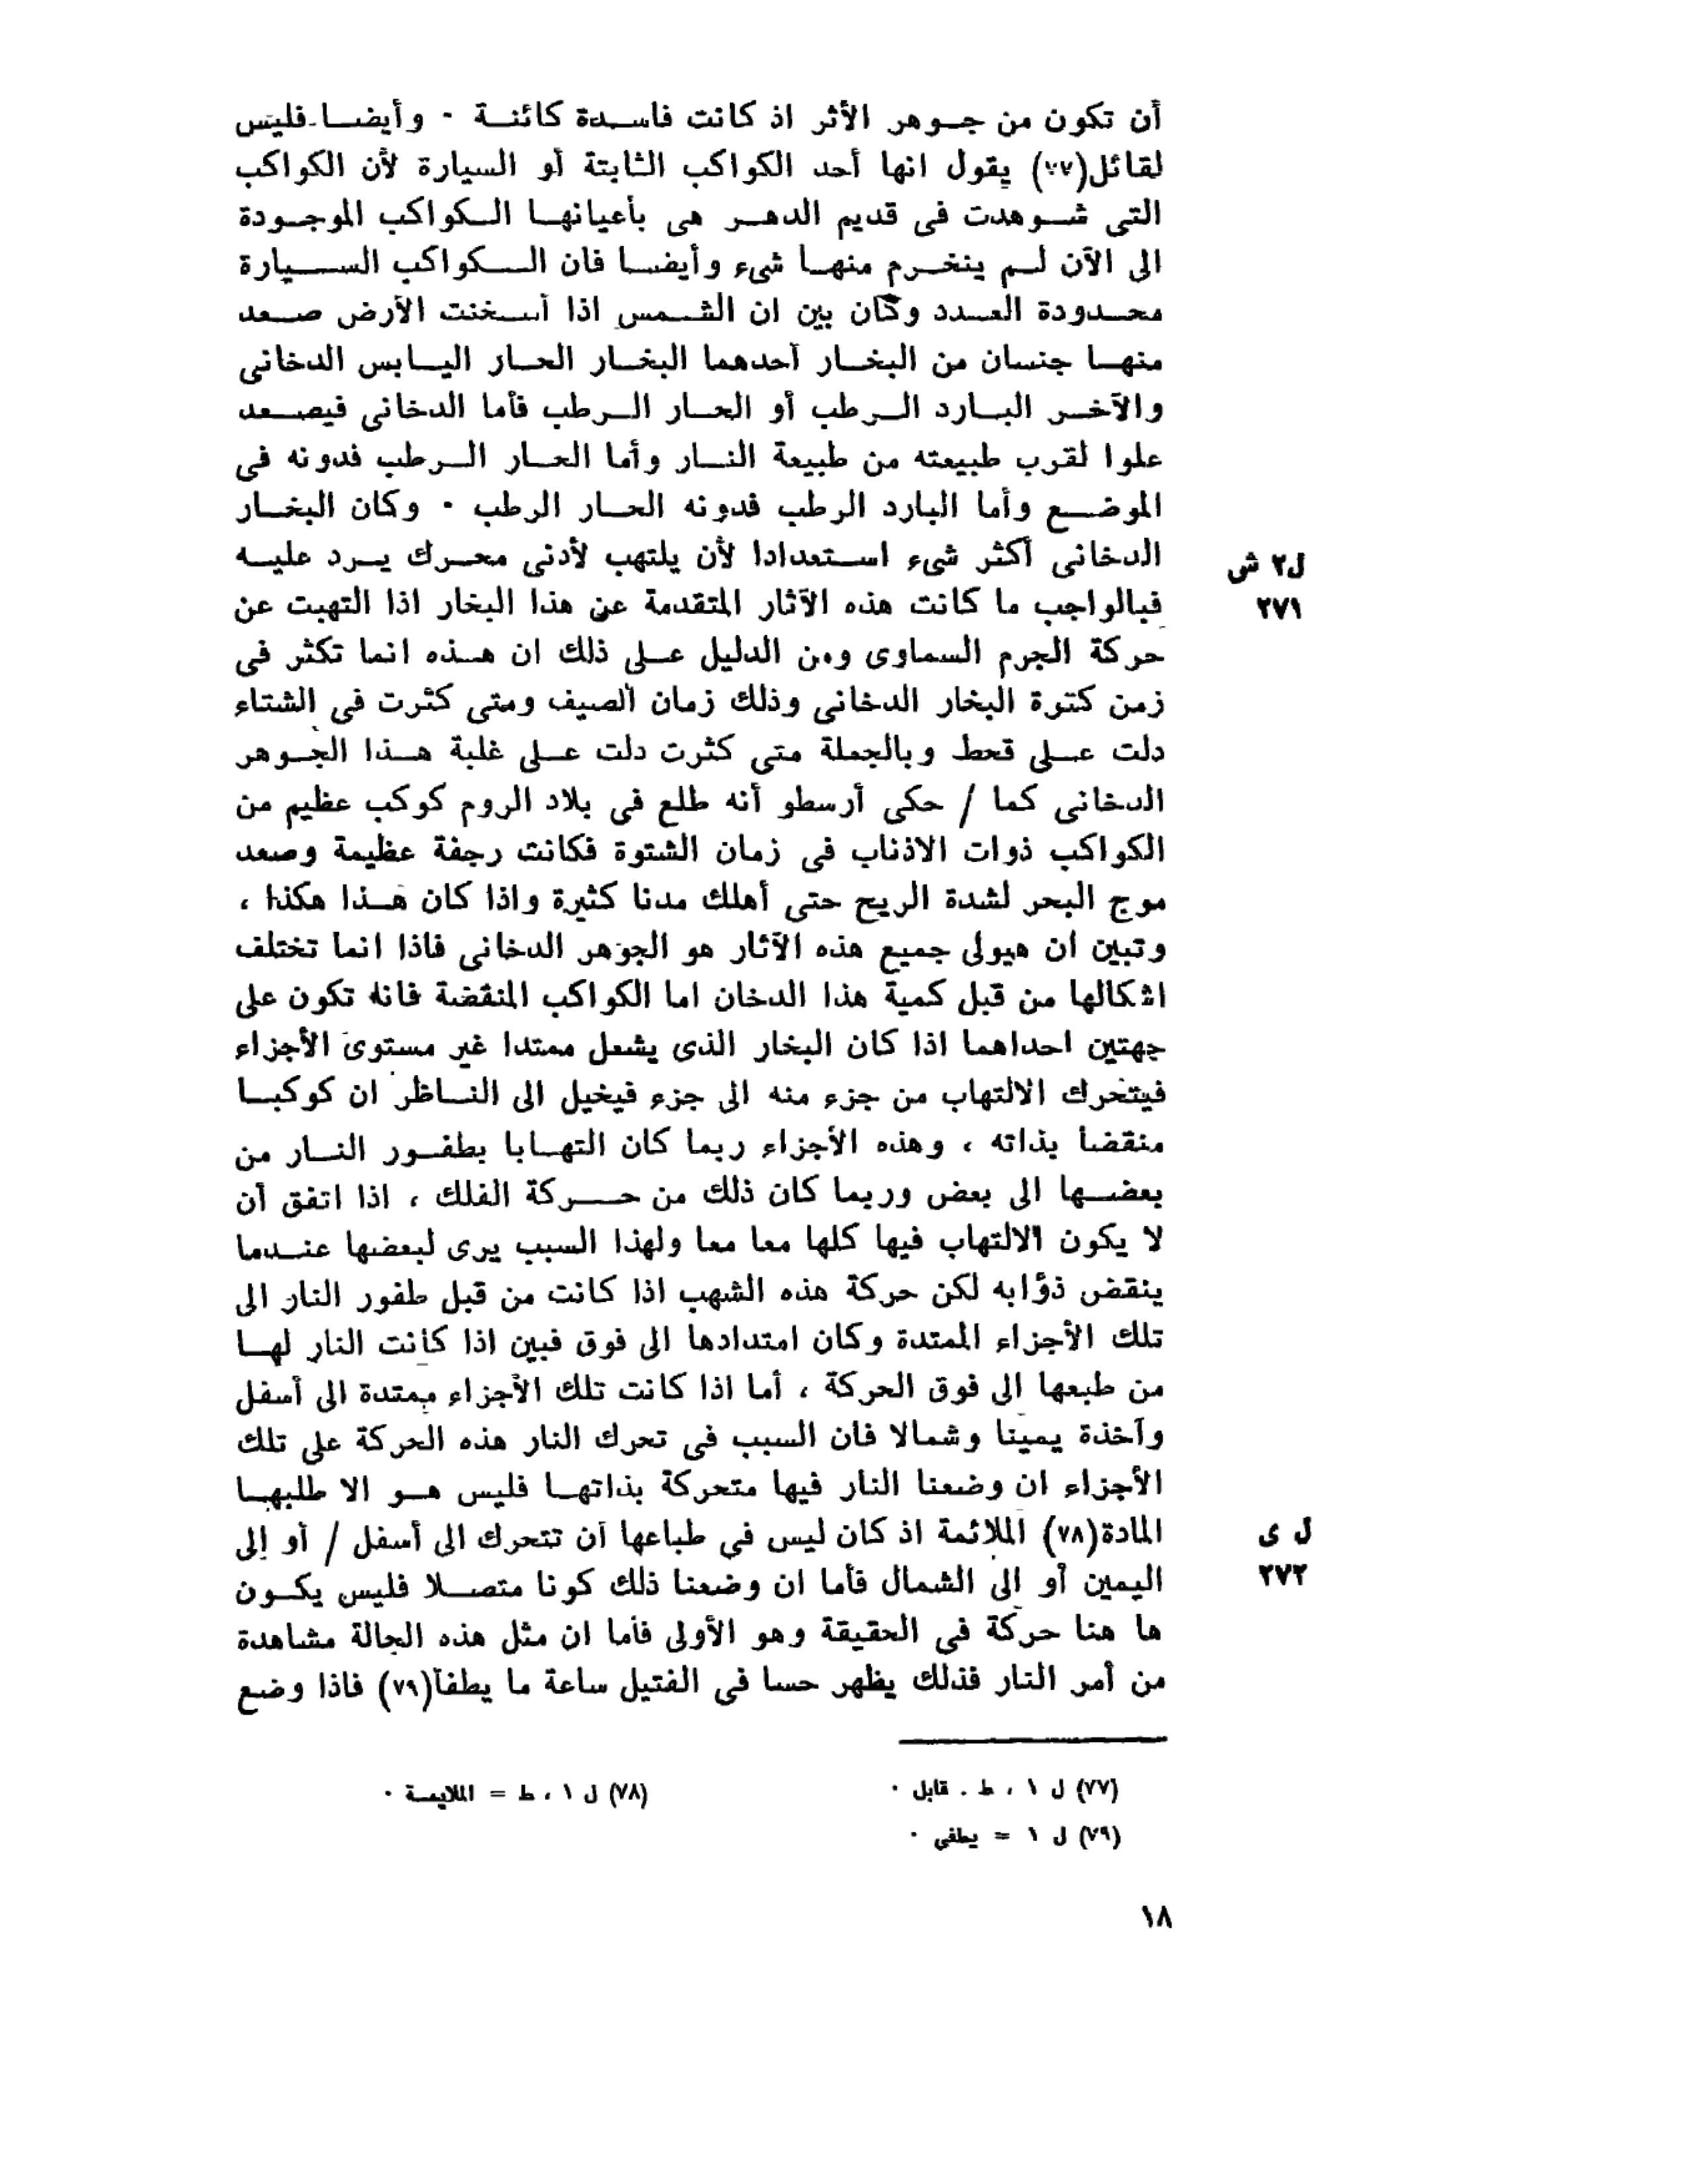 أن تكون من جوهر الأثر اذ كانت فاسدة كائنة ٠ وأيضا فليس
لقائل(٧٧) يقول انها أحد الكواكب الثابتة أو السيارة لأن الكواكب
التى شوهدت فى قديم الدهر هى بأعيانها الكواكب الموجودة
الى الآن لم ينخرم منها شىء وأيضا فان الكواكب السيارة
محدودة العدد وكان بين ان الشمس اذا أسخنت الأرض صعد
منها جنسان من البخار أحدهما البخار الحار اليابس الدخانى
والآخر البارد الرطب أو الحار الرطب فأما الدخانى فيصعد
علوا لقرب طبيعته من طبيعة النار وأما الحار الرطب فدونه فى
الموضع وأما البارد الرطب فدونه الحار الرطب ٠ وكان البخار
الدخانى أكثر شىء استعدادا لأن يلتهب لأدنى محرك يرد عليه
ل٢ ش
فبالواجب ما كانت هذه الآثار المتقدمة عن هذا البخار اذا التهبت عن
٢٧١
حركة الجرم السماوى ومن الدليل على ذلك ان هذه انما تكثر فى
زمن كترة البخار الدخانى وذلك زمان الصيف ومتى كثرت فى الشتاء
دلت على قحط وبالجملة متى كثرت دلت على غلبة هذا الجوهر
الدخانى كما / حكى أرسطو أنه طلع فى بلاد الروم كوكب عظيم من
الكواكب ذوات الاذناب فى زمان الشتوة فكانت رجفة عظيمة وصعد
موج البحر لشدة الريح حتى أهلك مدنا كثيرة واذا كان هذا هكذا ،
وتبين ان هيولى جميع هذه الآثار هو الجوهر الدخانى فاذا انما تختلف
اشكالها من قبل كمية هذا الدخان اما الكواكب المنقضة فانه تكون على
جهتين احداهما اذا كان البخار الذى يشعل ممتدا غير مستوى الأجزاء
فيتحرك الالتهاب من جزء منه الى جزء فيخيل الى الناظر ان كوكبا
منقضا بذاته ، وهذه الأجزاء ربما كان التهابا بطفور النار من
بعضها الى بعض وربما كان ذلك من حركة الفلك ، اذا اتفق أن
لا يكون الالتهاب فيها كلها معا معا ولهذا السبب يرى لبعضها عندما
ينقض ذؤابه لكن حركة هذه الشهب اذا كانت من قبل طفور النار الى
تلك الأجزاء الممتدة وكان امتدادها الى فوق فبين اذا كانت النار لها
من طبعها الى فوق الحركة ، أما اذا كانت تلك الأجزاء ممتدة الى أسفل
وآخذة يمينا وشمالا فان السبب فى تحرك النار هذه الحركة على تلك
الأجزاء ان وضعنا النار فيها متحركة بذاتها فليس هو الا طلبها
المادة(٧٨) الملائمة اذ كان ليس فى طباعها أن تتحرك الى أسفل / أو إلى
ل ى
اليمين أو الى الشمال فأما ان وضعنا ذلك كونا متصلا فليس يكون
٢٧٢
ها هنا حركة فى الحقيقة وهو الأولى فأما ان مثل هذه الحالة مشاهدة
من أمر النار فذلك يظهر حسا فى الفتيل ساعة ما يطفأ(٧٩) فاذا وضع
(٧٧) ل ١ ، ط . قابل ٠
(٧٨) ل ١ ، ط = الملايمة ٠
(٧٩) ل ١ = يطفي ٠
١٨